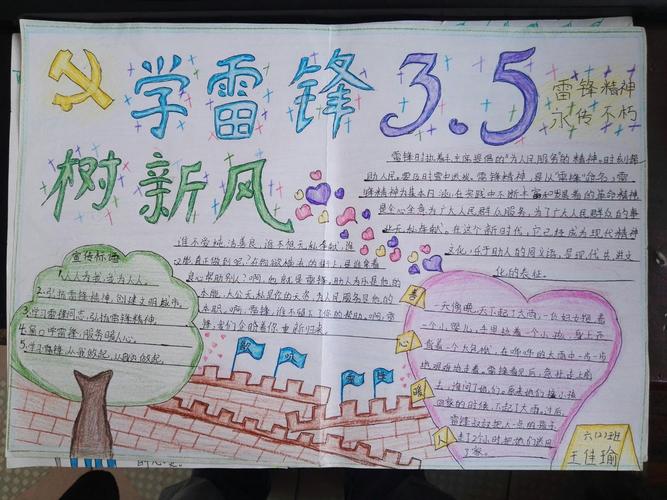 学雷锋 3.5
树新风
雷锋精神
永传不朽
雷锋时执着主席提倡的"为人民服务的精神,时刻都
助人民
雷锋精神,是以"雷锋"命名,雷
锋精神为基本内涵,在实践中不断丰富和发展着的革命精神
是全心全意为广大人民群众服务,为了广大人民群众的事
业无私奉献,在这个新时代,它已经成为现代精神
文化,乐于助人的同义语,是现代先进文
化的表征。
谁不崇拜洁善良,谁不想无私奉献,谁
心帮助别人?啊,他就是雷锋,助人为乐是他的
本能,大公无私是他的天资,为人民服务是他的
本职。啊,雷锋,谁不领了你的帮助。啊,雷
锋,我们全盼着你重新归来。
宣传标语
1.人人为我,我为人人。
2.弘扬雷锋精神,创建文明城市。
3.学习雷锋同志,弘扬雷锋精神。
呼雷锋,服务暖人心。
5.学习雷锋,从我做起,从我做起
善
心
暖
人
一天傍晚,天下起了大雨,一位妇女抱着
一个小婴儿,手里拉着一个小孩,身上还
背着一个大包袱,在哗哗的大雨中一步一步
地艰难地走着。雷锋看见后,急忙走上前
去,询问了他们。
回家的时候,下起了大雨。
雷锋叔叔把大一点的孩子
走了2小时把他们送回
了家。
六(2)班
王佳瑜